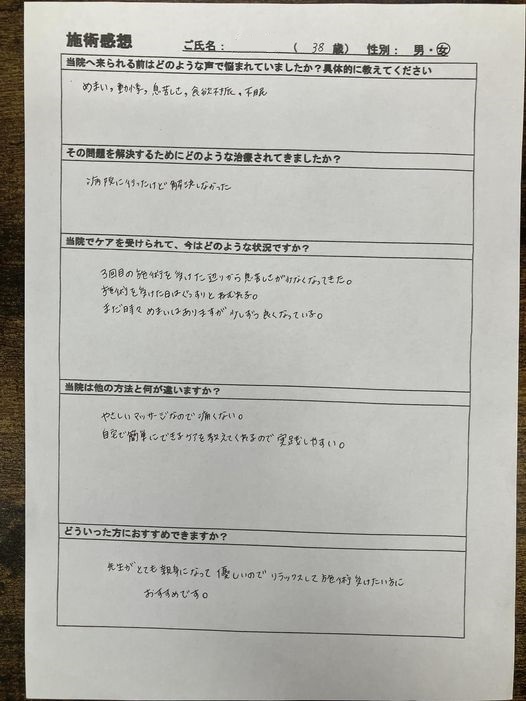 施術感想 ご氏名: ( 38 歳) 性別: 男・女
当院へ来られる前はどのような声で悩まれていましたか?具体的に教えてください
めまい、動悸、息苦しさ、食欲不振、不眠
その問題を解決するためにどのような治療されてきましたか?
病院に行ったけど解決しなかった
当院でケアを受けられて、今はどのような状況ですか?
3回目の施術を受けた辺りから息苦しさがなくなってきた。
施術を受けた日はぐっすりとねむれる。
まだ時々めまいはありますが少しずつ良くなっている。
当院は他の方法と何が違いますか?
やさしいマッサージなので痛くない。
自宅で簡単にできるケアを教えてくれるので実践しやすい。
どういった方におすすめできますか?
先生がとても親身になって優しいのでリラックスして施術受けたい方に
おすすめです。